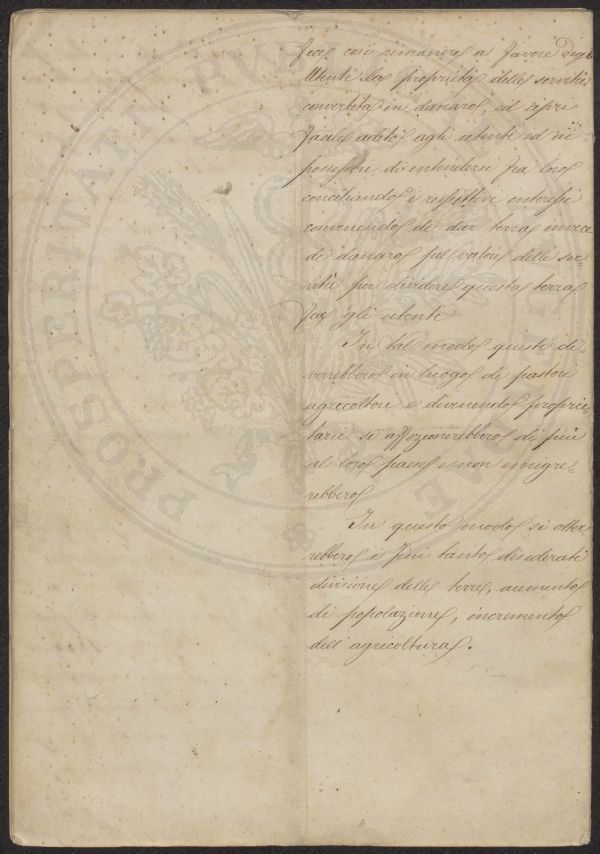 fece così rimanere a favore degli
Utenti la proprietà delle servitù
convertita in danaro, ed aprì
facile adito agli utenti ed ai
possessori di intendersi fra loro
conciliando i rispettivi interessi
convenendo di dar terra invece
di danaro pel valore delle ser-
vitù per dividere questa terra
fra gli utenti
In tal modo questi di-
verrebbero in luogo di pastori
agricoltori e divenendo proprie
tarii si affezionerebbero di più
al loro paese e non emigre-
rebbero
In questo modo si otter-
rebbero i fini tanto desiderati
divisione delle terre, aumento
di popolazione, incremento
dell'agricoltura.
PROSPERITATI PUBLICAE